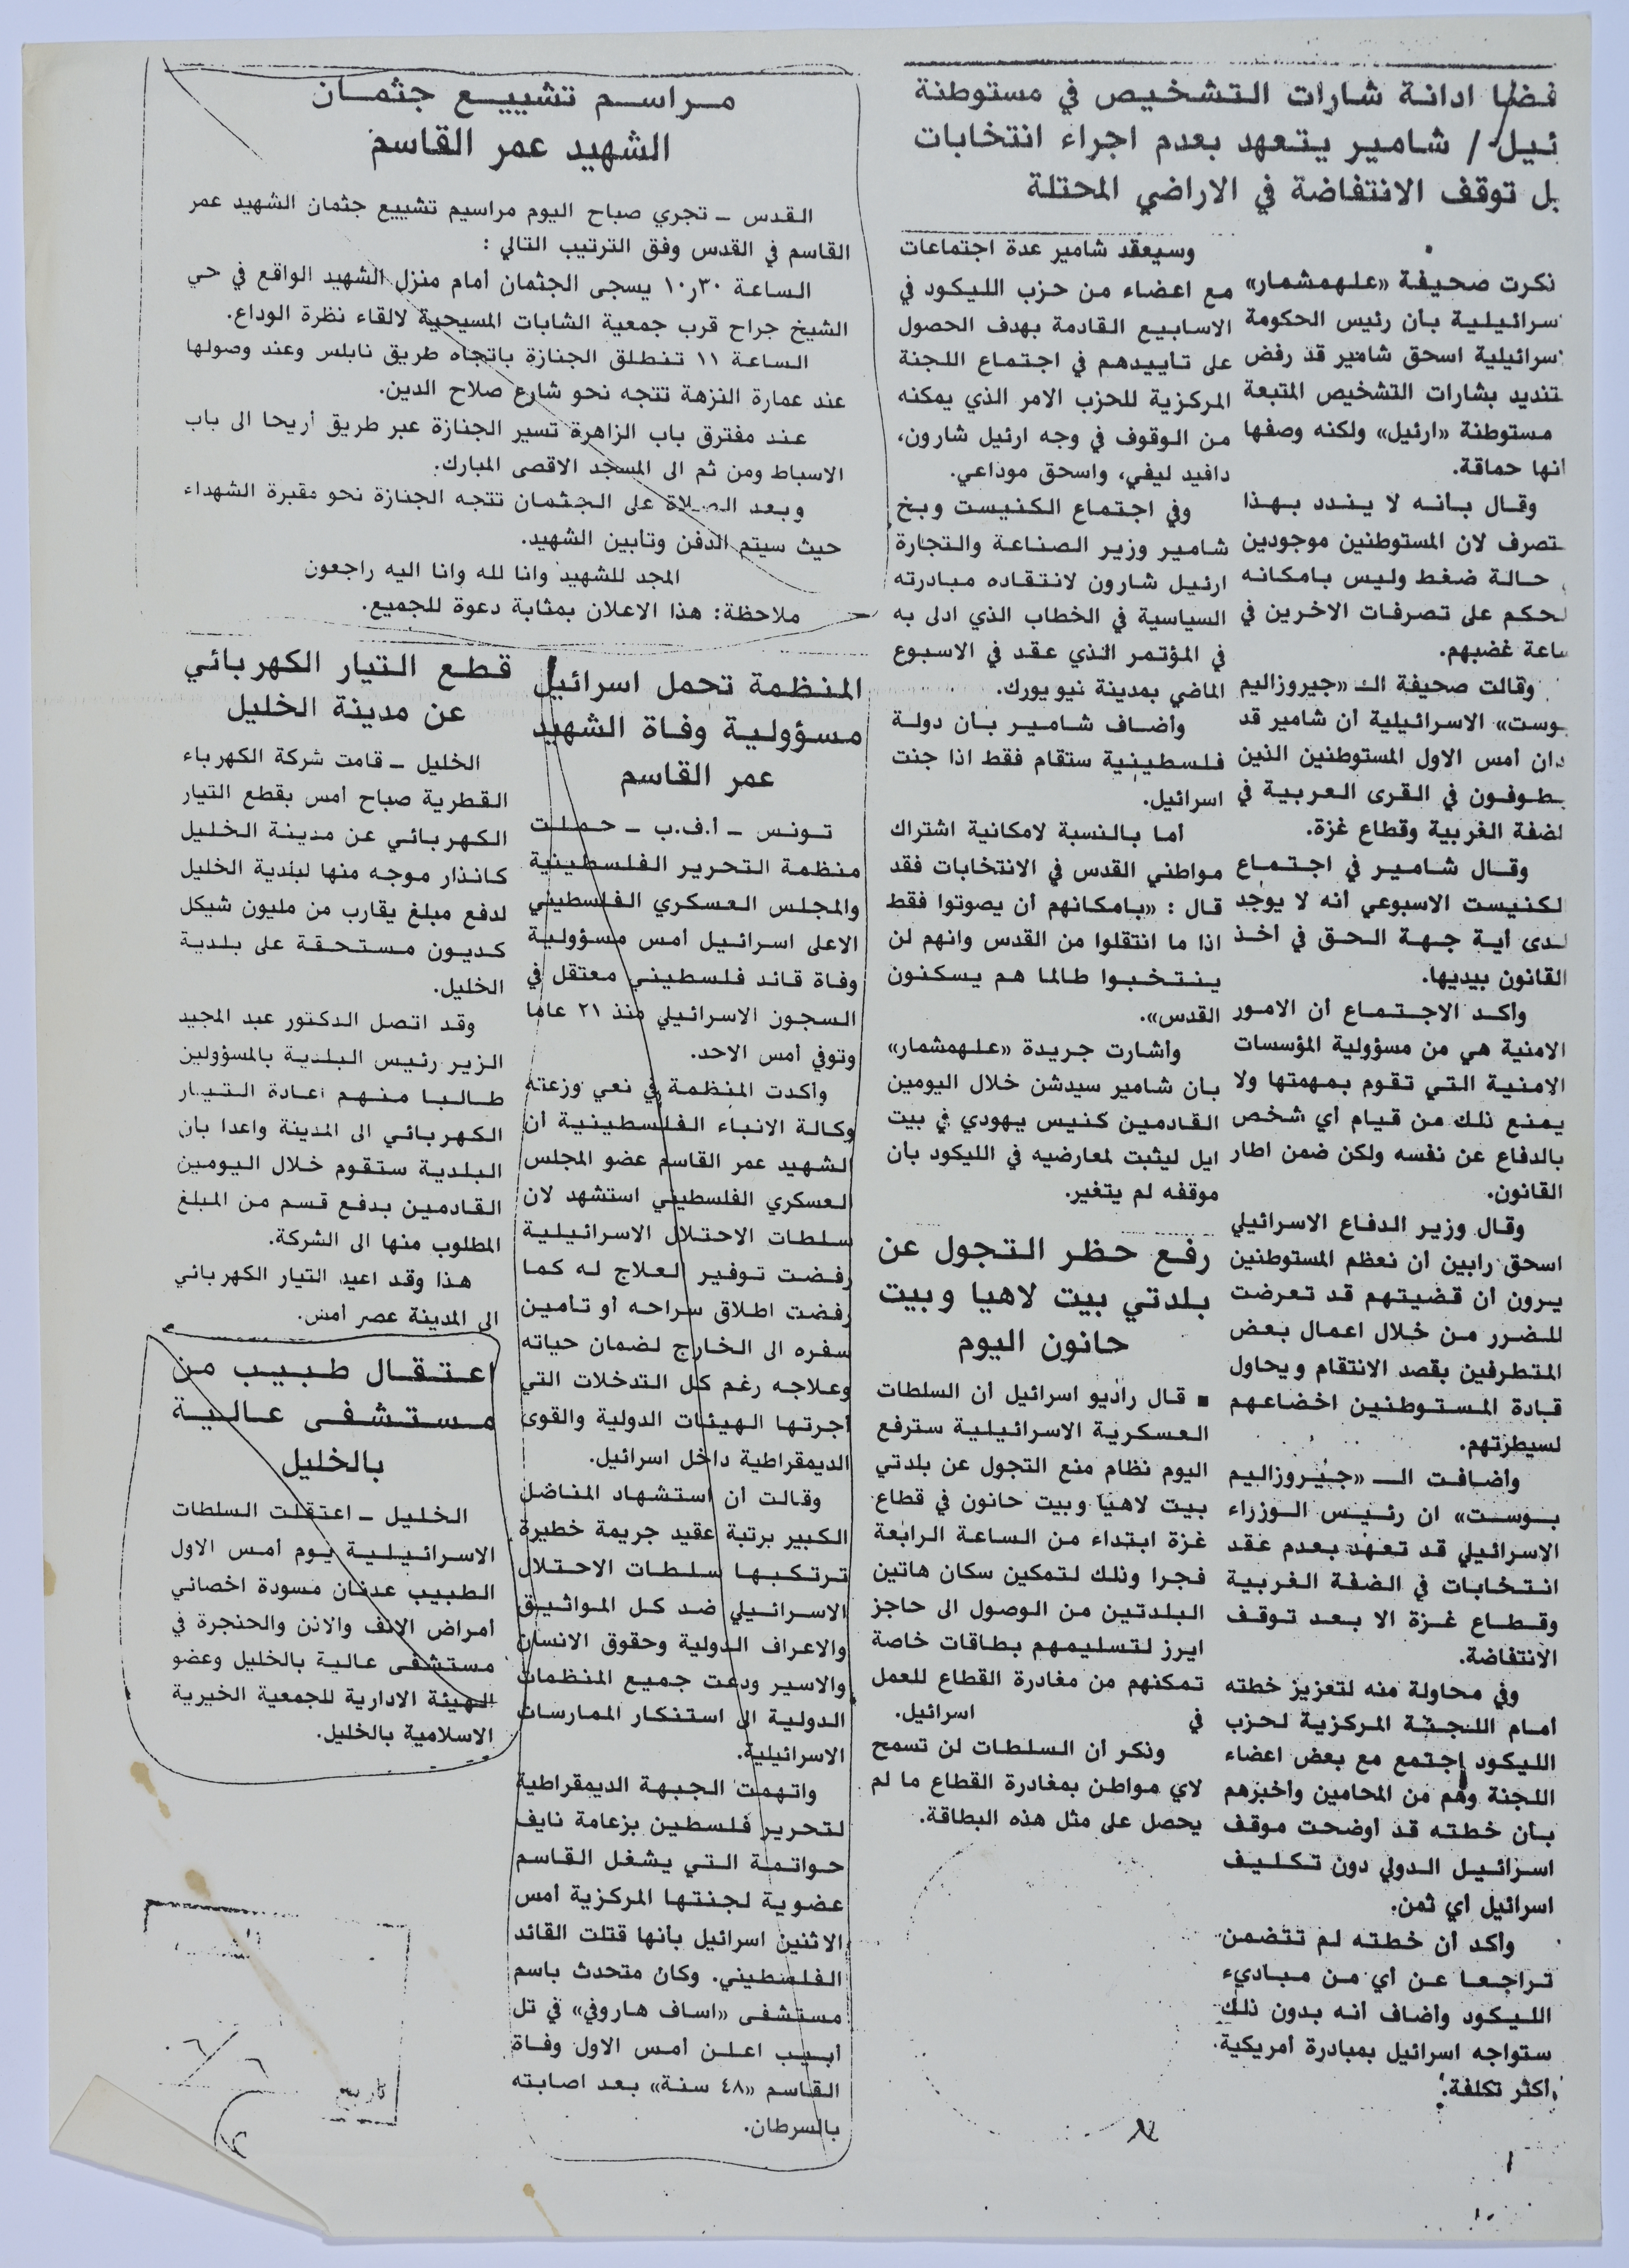 فضا ادانة شارات التشخيص في مستوطنة
ئيل / شامير يتعهد بعدم اجراء انتخابات
بل توقف الانتفاضة في الاراضي المحتلة
ذكرت صحيفة «علهمشمار»
سرائيلية بأن رئيس الحكومة
سرائيلية اسحق شامير قد رفض
تنديد بشارات التشخيص المتبعة
مستوطنة «ارئيل» ولكنه وصفها
انها حماقة.
وقال بانه لا يندد بهذا
تصرف لان المستوطنين موجودين
حالة ضغط وليس بامكانه
لحكم على تصرفات الاخرين في
ساعة غضبهم.
وقالت صحيفة الـ «جيروزاليم
بوست» الاسرائيلية أن شامير قد
دان أمس الاول المستوطنين الذين
يطوفون في القرى العربية في
لضفة الغربية وقطاع غزة.
وقال شامير في اجتماع
لكنيست الاسبوعي أنه لا يوجد
لدى أية جهة الحق في أخذ
القانون بيديها.
وأكد الاجتماع أن الامور
الامنية هي من مسؤولية المؤسسات
الامنية التي تقوم بمهمتها ولا
يمنع ذلك من قيام أي شخص
بالدفاع عن نفسه ولكن ضمن اطار
القانون.
وقال وزير الدفاع الاسرائيلي
اسحق رابين أن نعظم المستوطنين
يرون أن قضيتهم قد تعرضت
للضرر من خلال اعمال بعض
المتطرفين بقصد الانتقام ويحاول
قيادة المستوطنين اخضاعهم
لسيطرتهم.
وأضافت الـ «جيروزاليم
بوست» ان رئيس الوزراء
الاسرائيلي قد تعهد بعدم عقد
انتخابات في الضفة الغربية
وقطاع غزة الا بعد توقف
الانتفاضة.
وفي محاولة منه لتعزيز خطته
أمام اللجنة المركزية لحزب
الليكود اجتمع مع بعض اعضاء
اللجنة وهم من المحامين وأخبرهم
بأن خطته قد أوضحت موقف
اسرائيل الدولي دون تكليف
اسرائيل أي ثمن.
وأكد أن خطته لم تتضمن
تراجعا عن أي من مباديء
الليكود وأضاف أنه بدون ذلك
ستواجه اسرائيل بمبادرة أمريكية
أكثر تكلفة.
وسيعقد شامير عدة اجتماعات
مع اعضاء من حزب الليكود في
الاسابيع القادمة بهدف الحصول
على تأييدهم في اجتماع اللجنة
المركزية للحزب الامر الذي يمكنه
من الوقوف في وجه ارئيل شارون،
دافيد ليفي، واسحق موداعي.
وفي اجتماع الكنيست وبخ
شامير وزير الصناعة والتجارة
ارئيل شارون لانتقاده مبادرته
السياسية في الخطاب الذي ادلى به
في المؤتمر الذي عقد في الاسبوع
الماضي بمدينة نيويورك.
وأضاف شامير بأن دولة
فلسطينية ستقام فقط اذا جنت
اسرائيل.
أما بالنسبة لامكانية اشتراك
مواطني القدس في الانتخابات فقد
قال : «بامكانهم أن يصوتوا فقط
اذا ما انتقلوا من القدس وانهم لن
ينتخبوا طالما هم يسكنون
القدس».
وأشارت جريدة «علهمشمار»
بان شامير سيدشن خلال اليومين
القادمين كنيس يهودي في بيت
ايل ليثبت لمعارضيه في الليكود بأن
موقفه لم يتغير.
رفع حظر التجول عن
بلدتي بيت لاهيا وبيت
حانون اليوم
■ قال راديو اسرائيل أن السلطات
العسكرية الاسرائيلية سترفع
اليوم نظام منع التجول عن بلدتي
بيت لاهيا وبيت حانون في قطاع
غزة ابتداء من الساعة الرابعة
فجرا وذلك لتمكين سكان هاتين
البلدتين من الوصول الى حاجز
ايرز لتسليمهم بطاقات خاصة
تمكنهم من مغادرة القطاع للعمل
في اسرائيل.
وذكر أن السلطات لن تسمح
لاي مواطن بمغادرة القطاع ما لم
يحصل على مثل هذه البطاقة.
مراسم تشييع جثمان
الشهيد عمر القاسم
القدس ــ تجري صباح اليوم مراسيم تشييع جثمان الشهيد عمر
القاسم في القدس وفق الترتيب التالي :
الساعة ١٠٫٣٠ يسجى الجثمان أمام منزل الشهيد الواقع في حي
الشيخ جراح قرب جمعية الشابات المسيحية لالقاء نظرة الوداع.
الساعة ١١ تنطلق الجنازة باتجاه طريق نابلس وعند وصولها
عند عمارة النزهة تتجه نحو شارع صلاح الدين.
عند مفترق باب الزاهرة تسير الجنازة عبر طريق أريحا الى باب
الاسباط ومن ثم الى المسجد الاقصى المبارك.
وبعد الصلاة على الجثمان تتجه الجنازة نحو مقبرة الشهداء
حيث سيتم الدفن وتأبين الشهيد.
المجد للشهيد وانا لله وانا اليه راجعون
ملاحظة: هذا الاعلان بمثابة دعوة للجميع.
المنظمة تحمل اسرائيل
مسؤولية وفاة الشهيد
عمر القاسم
تونس ــ أ.ف.ب ــ حملت
منظمة التحرير الفلسطينية
والمجلس العسكري الفلسطيني
الاعلى اسرائيل أمس مسؤولية
وفاة قائد فلسطيني معتقل في
السجون الاسرائيلي منذ ٢١ عاما
وتوفي أمس الاحد.
وأكدت المنظمة في نعي وزعته
وكالة الانباء الفلسطينية أن
الشهيد عمر القاسم عضو المجلس
العسكري الفلسطيني استشهد لان
سلطات الاحتلال الاسرائيلية
رفضت توفير العلاج له كما
رفضت اطلاق سراحه أو تأمين
سفره الى الخارج لضمان حياته
وعلاجه رغم كل التدخلات التي
أجرتها الهيئات الدولية والقوى
الديمقراطية داخل اسرائيل.
وقالت أن استشهاد المناضل
الكبير برتبة عقيد جريمة خطيرة
ترتكبها سلطات الاحتلال
الاسرائيلي ضد كل المواثيق
والاعراف الدولية وحقوق الانسان
والاسير ودعت جميع المنظمات
الدولية الى استنكار الممارسات
الاسرائيلية.
واتهمت الجبهة الديمقراطية
لتحرير فلسطين بزعامة نايف
حواتمة التي يشغل القاسم
عضوية لجنتها المركزية أمس
الاثنين اسرائيل بأنها قتلت القائد
الفلسطيني. وكان متحدث باسم
مستشفى «اساف هاروفي» في تل
أبيب اعلن أمس الاول وفاة
القاسم «٤٨ سنة» بعد اصابته
بالسرطان.
قطع التيار الكهربائي
عن مدينة الخليل
الخليل ــ قامت شركة الكهرباء
القطرية صباح أمس بقطع التيار
الكهربائي عن مدينة الخليل
كانذار موجه منها لبلدية الخليل
لدفع مبلغ يقارب من مليون شيكل
كديون مستحقة على بلدية
الخليل.
وقد اتصل الدكتور عبد المجيد
الزير رئيس البلدية بالمسؤولين
طالبا منهم اعادة التيار
الكهربائي الى المدينة واعدا بأن
البلدية ستقوم خلال اليومين
القادمين بدفع قسم من المبلغ
المطلوب منها الى الشركة.
هذا وقد اعيد التيار الكهربائي
الى المدينة عصر أمس.
اعتقال طبيب من
مستشفى عالية
بالخليل
الخليل ــ اعتقلت السلطات
الاسرائيلية يوم أمس الاول
الطبيب عدنان مسودة اخصائي
أمراض الانف والاذن والحنجرة في
مستشفى عالية بالخليل وعضو
الهيئة الادارية للجمعية الخيرية
الاسلامية بالخليل.
٦/٦
تاريخ